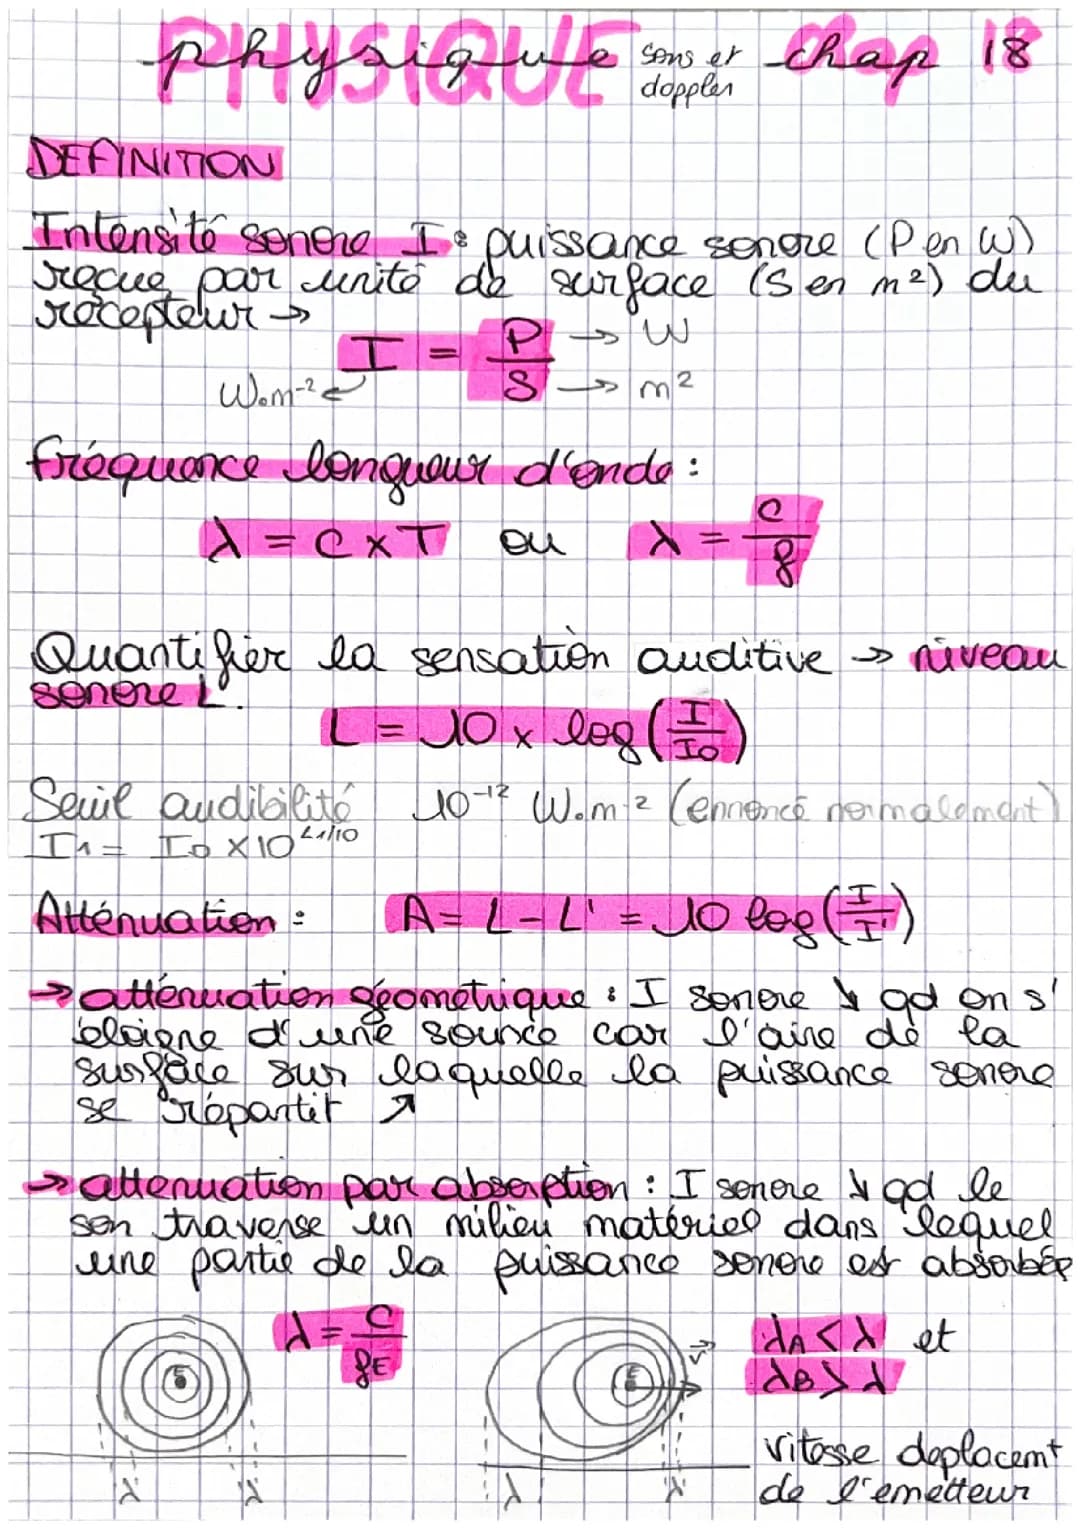 PHYSIQUE
physique sons et doppler chap 18
DEFINITION
Intensité sonore I : puissance sonore (P en W)
reçue par unité de surface (S en m²) du
récepteur →
I = P/S → W
W.m⁻² → m²
fréquence longueur d'onde :
λ = c × T ou λ = c/f
Quantifier la sensation auditive → niveau
sonore L.
L = 10 × log(I/I0)
Seuil audibilité 10⁻¹² W.m⁻² (ennoncé normalement)
I1 = I0 × 10^L1/10
Atténuation : A = L - L' = 10 log(I/I')
→ atténuation géometrique : I sonore ↘ qd on s'
éloigne d'une source car l'aire de la
surface sur laquelle la puissance sonore
se répartit ↗
→ attenuation par absorption : I sonore ↘ qd le
son traverse un milieu matériel dans lequel
une partie de la puissance sonore est absorbée
λ = c/fE
E
E v
λA < λ et
λB > λ
vitesse deplacemt
de l'emetteur
λ λ λ λ